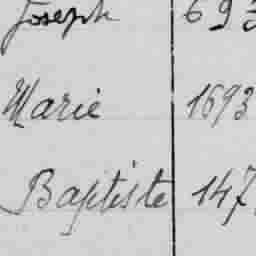 Joseph 693
Marie 1693
Baptiste 147